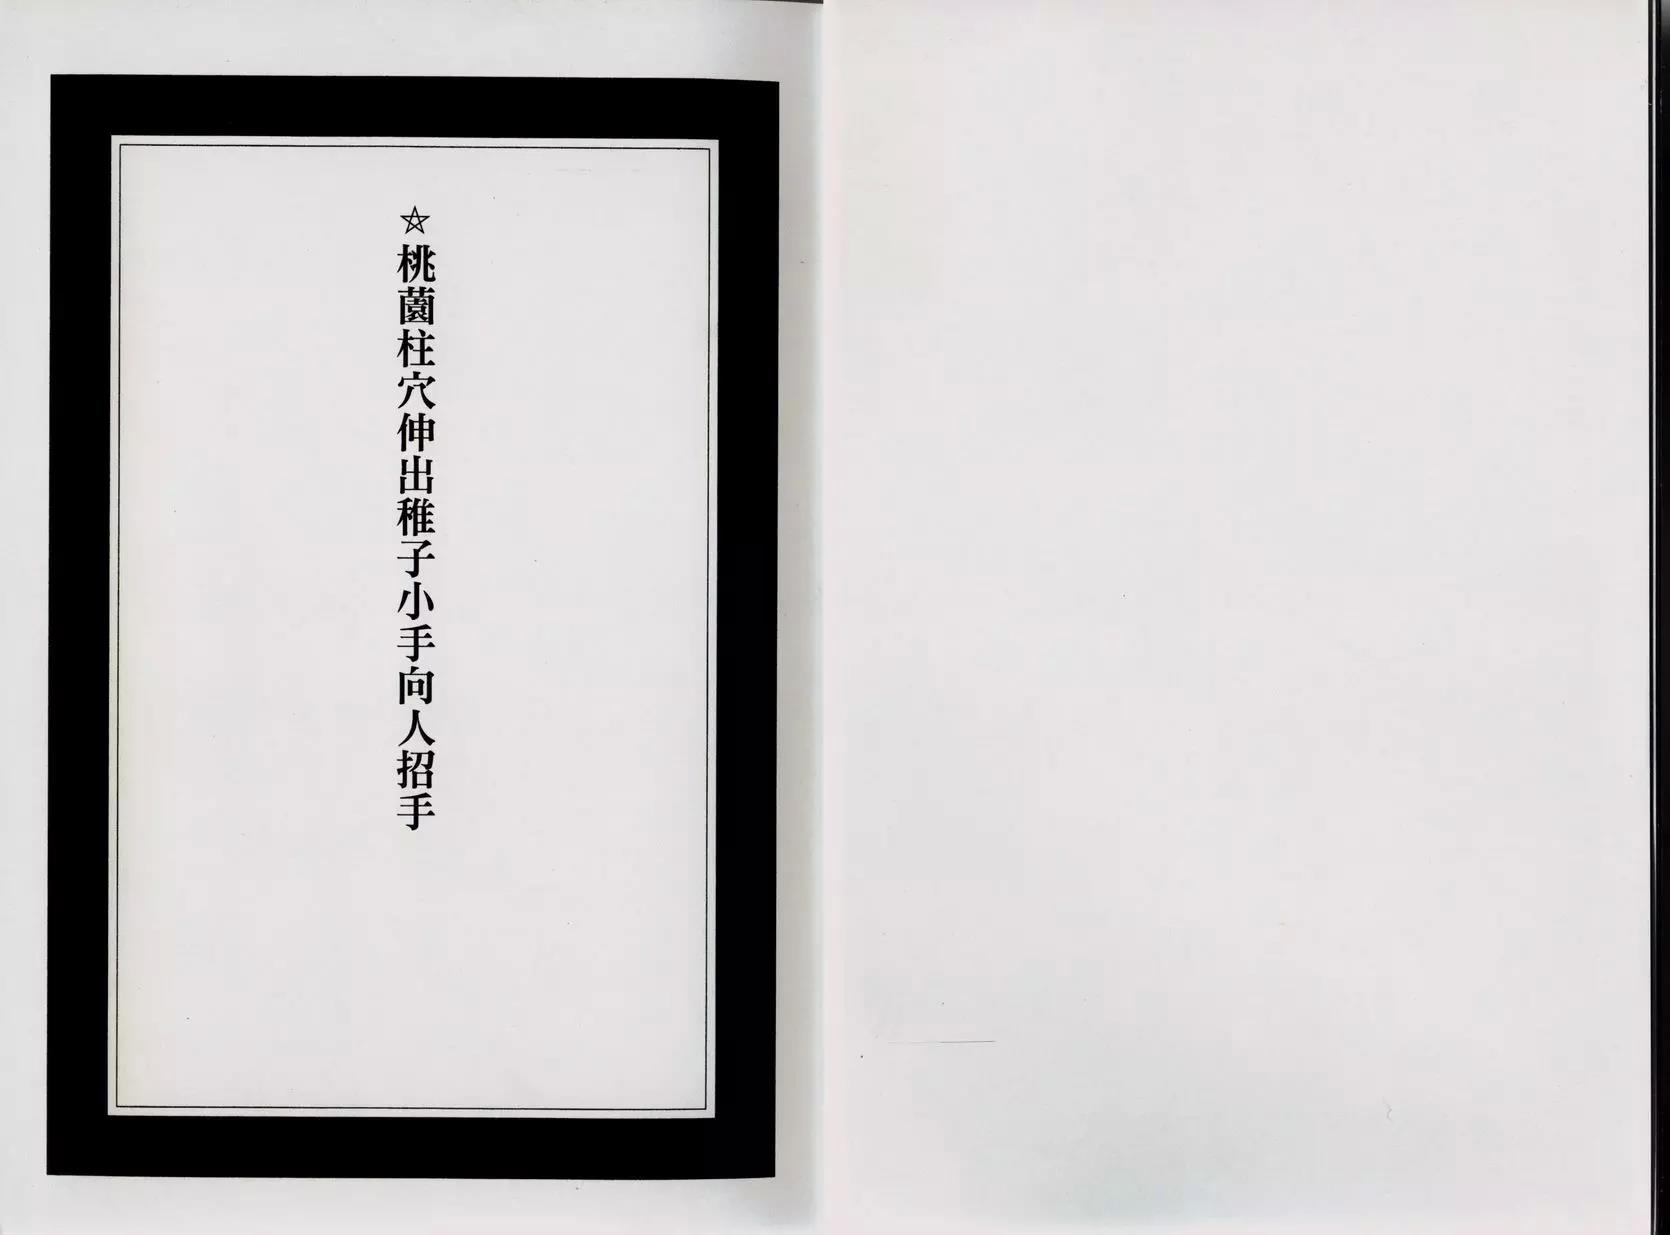 ☆桃薗柱穴伸出稚子小手向人招手